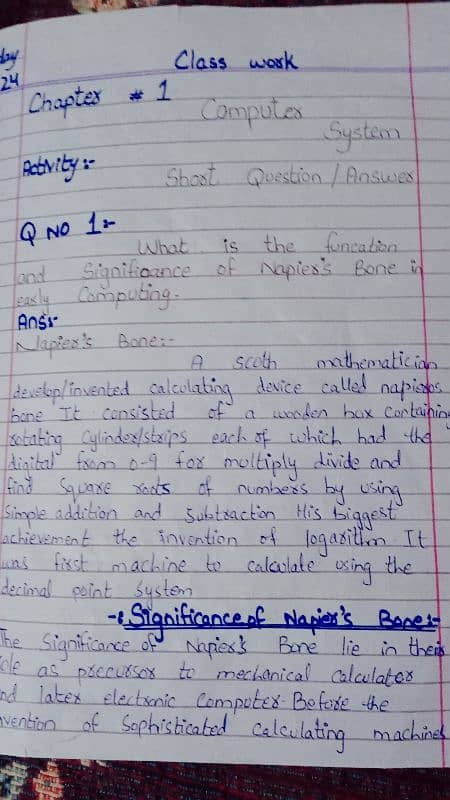 day
24
Class work
Chapter # 1
Computer
System
Activity :-
Short Question / Answer
Q No 1:-
What is the funcation
and Significance of Napier's Bone in
early Computing.
Ans:-
Napier's Bone:-
A scoth mathematician
develop/invented calculating device called napiers
bone It consisted of a wooden box Containing
rotating Cylinder/strips each of which had the
digital from 0-9 for multiply divide and
find Square roots of numbers by using
Simple addition and Subtraction His biggest
achievement the invention of logarithm It
was first machine to calculate using the
decimal point System
-: Significance of Napier's Bone:-
The Significance of Napier's Bone lie in their
as precursor to mechanical Calculator
nd later electronic Computer. Before the
vention of Sophisticated Calculating machines